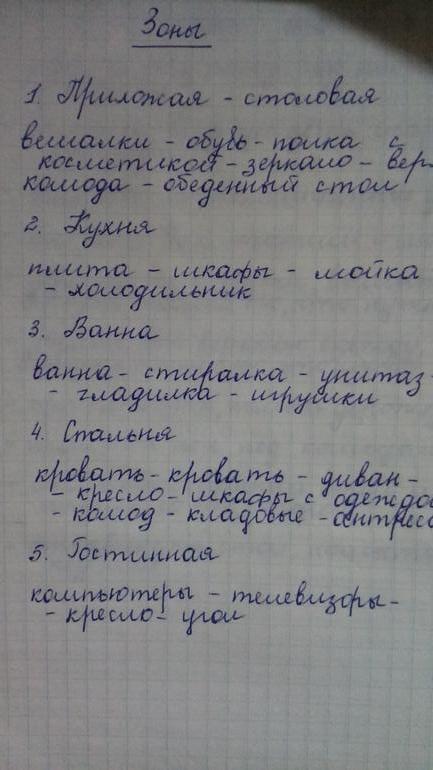 Зоны
1. Приложая - столовая
вешалки - обувь - полка с
косметикой - зеркало - вер
комода - обеденный стол
2. Кухня
плита - шкафы - мойка
- холодильник
3. Ванна
ванна - стиралка - унитаз -
- гладилка - игрушки
4. Спальня
кровать - кровать - диван -
- кресло - шкафы с одеждо
- комод - кладовые - антресо
5. Гостинная
компьютеры - телевизоры -
- кресло - угол